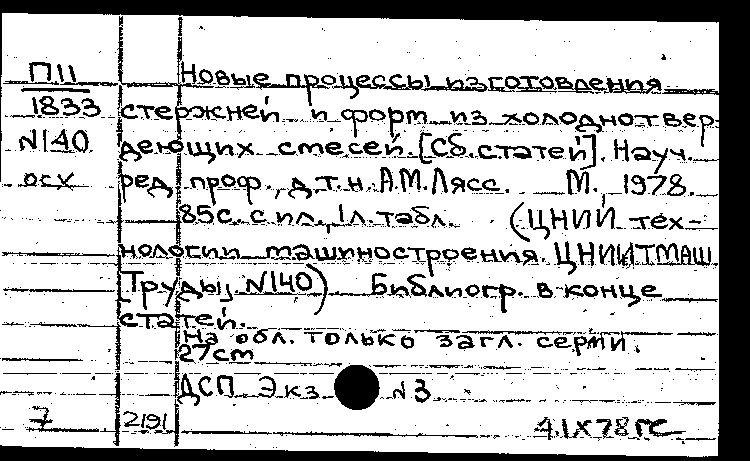 П11 Новые процессы изготовления
1833 стержней и форм из холоднотвер-
N140 деющих смесей. [Сб. статей]. Науч.
осх ред. проф., д.т.н. А.М.Лясс. М., 1978.
85с. с ил., 1л. табл. (ЦНИИ тех-
нологии машиностроения. ЦНИИТМАШ.
[Труды], N140) Библиогр. в конце
статей.
На обл. только загл. серии.
27cm
ДСП Экз. N3
7 2191 4.IX 78 ГС